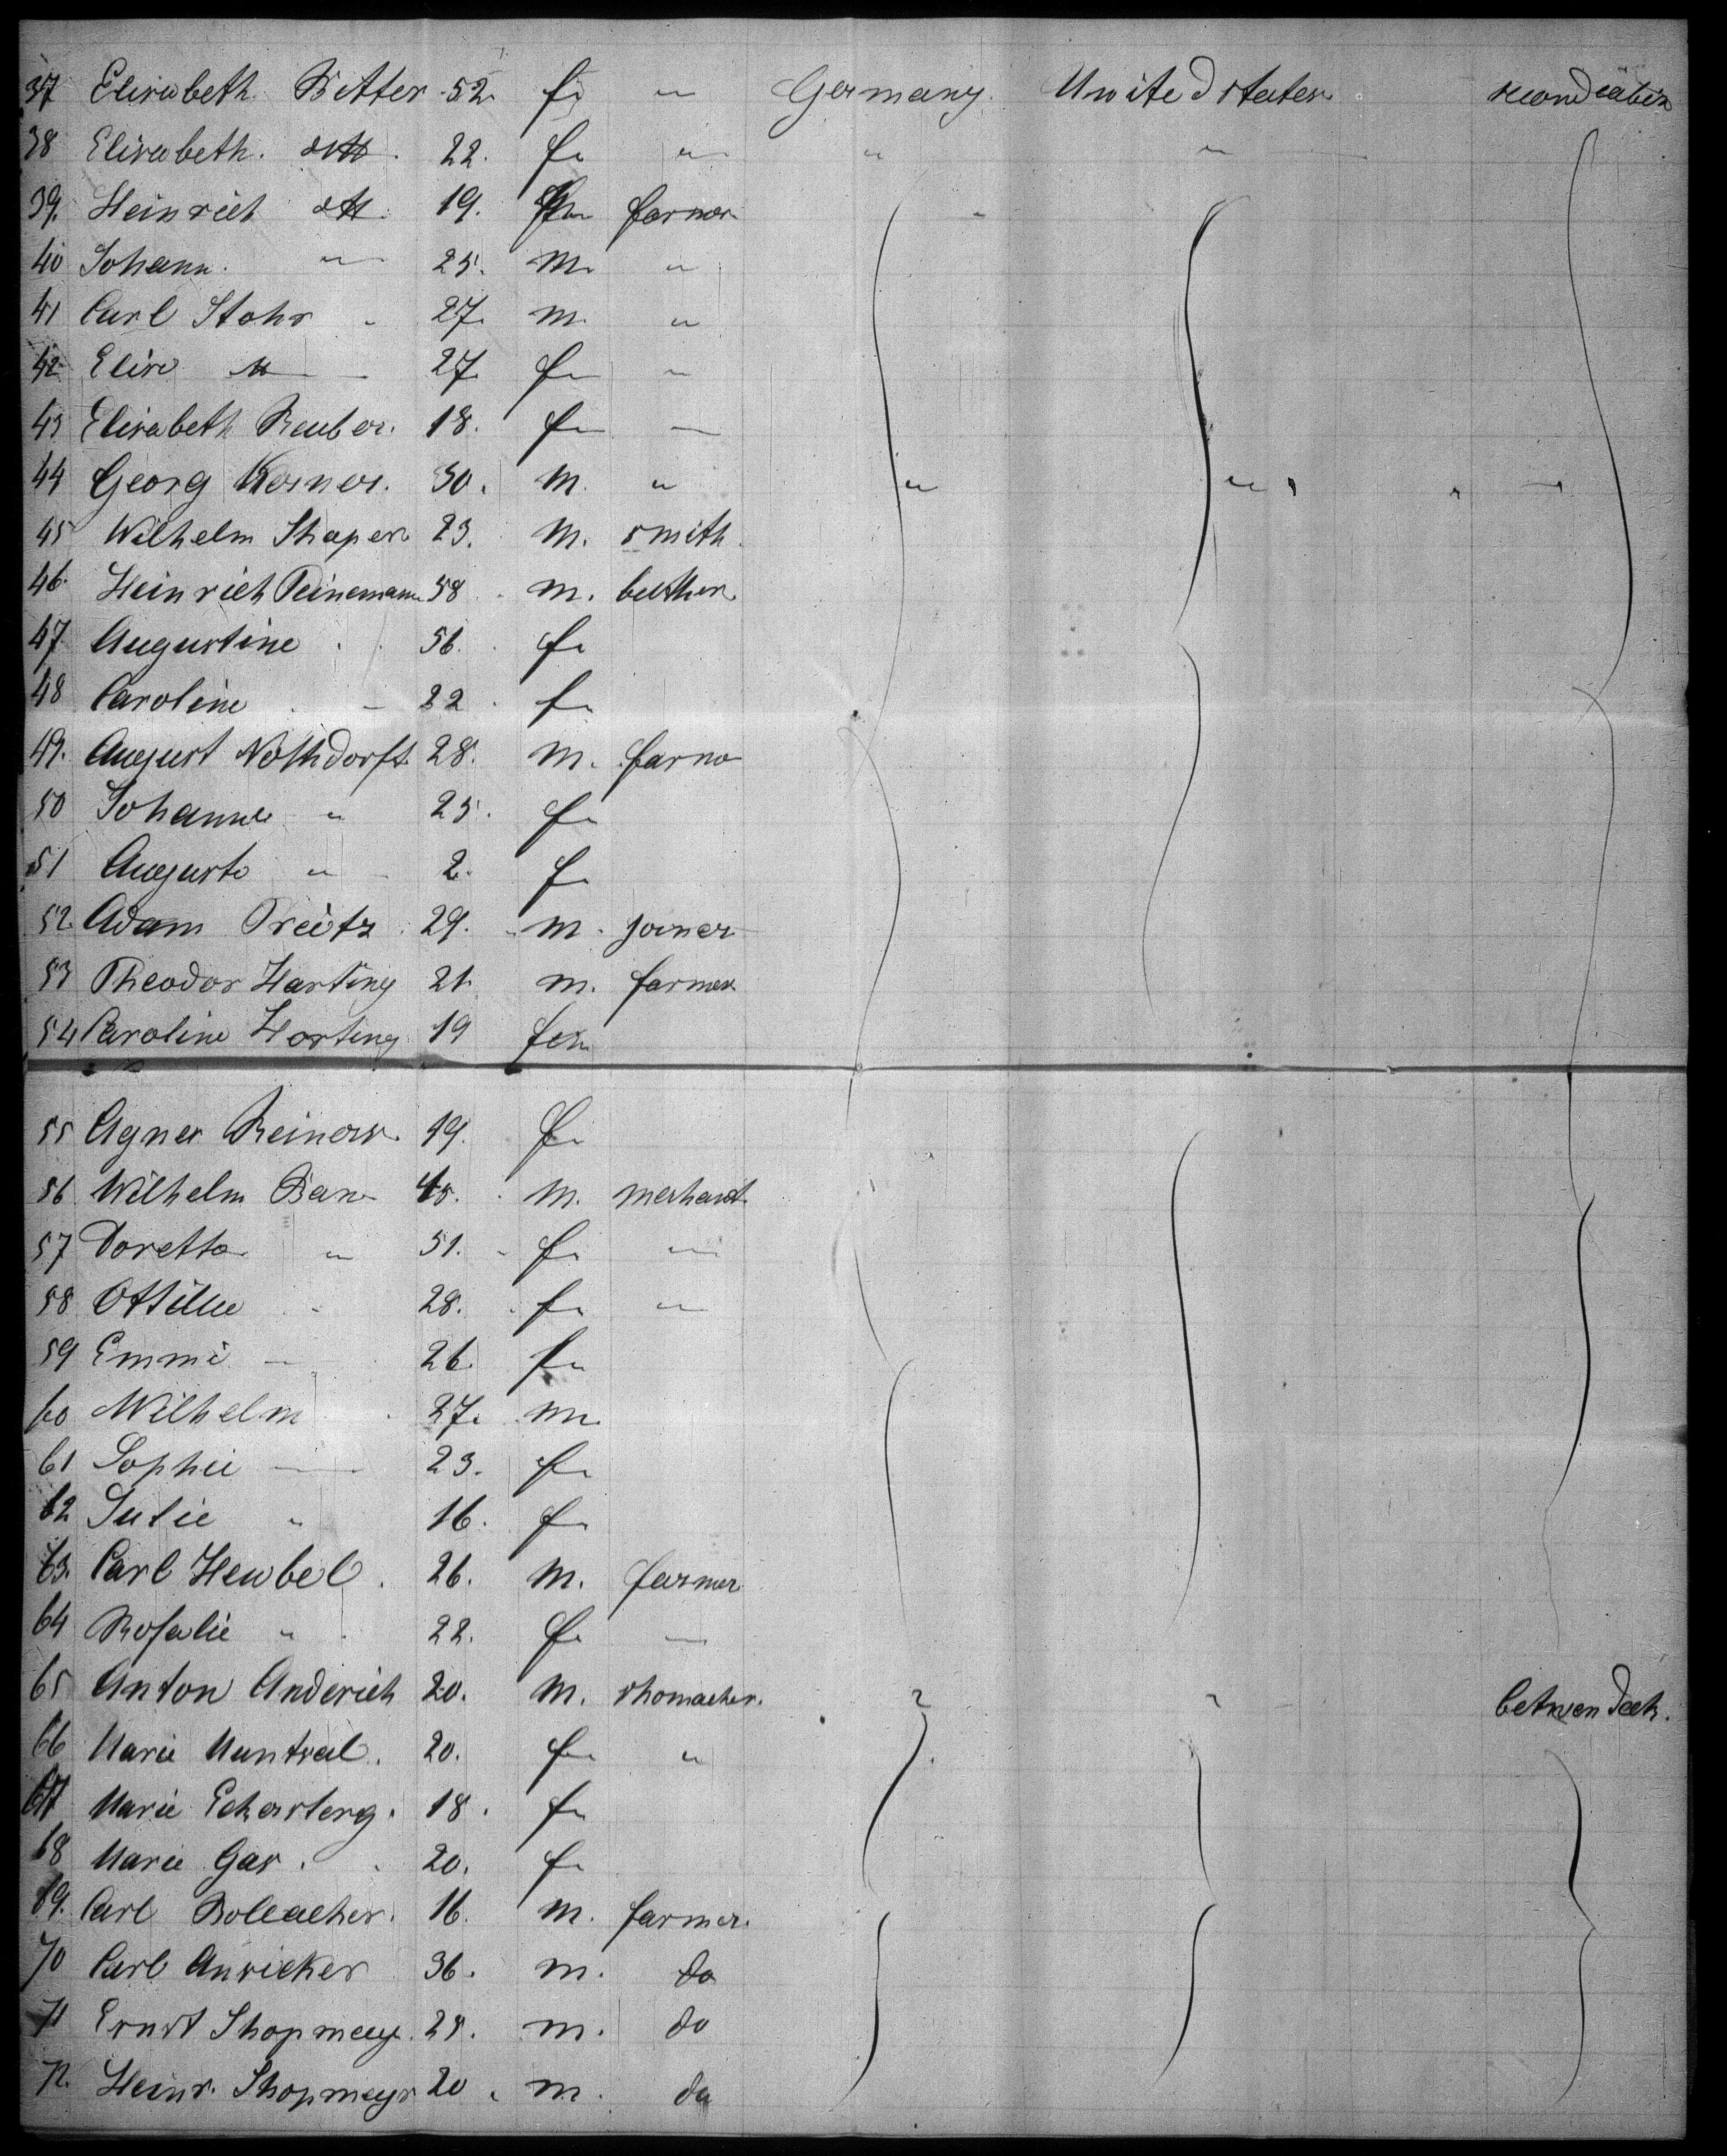 37 Elisabeth Ritter 52. f. " Germany. United states. second cabin
38 Elisabeth. ditto. 22. f. " " "
39. Heinrich ditto. 19. farmer
40 Johann. " 25. m. "
41 Carl Stohr " 27. m. "
42 Elise " 27. f. "
43 Elisabeth Reuber. 18. f. —
44 Georg Körner. 30. m. " " " "
45 Wilhelm Shaper 23. m. smith.
46. Heinrich Deinemann 58 m. buther.
47. Augustine . 56. f.
48 Caroline . - 22. f.
49. August Nothdorft. 28. m. farmer
50 Johanne " 25. f.
51 Auguste " 2. f.
52. Adam Treitz 29. m. joiner
53 Theodor Harting 21. m. farmer
54 Caroline Harting 19 fem
55 Agnes Reiners. 19. f.
56 Wilhelm 45. m. merhant.
57 Dorette " 51. f. "
58 Ottilie " 28. f. "
59 Emmi — 26. f.
60 Wilhelm 27. m.
61 Sophie — 23. f.
62 Julie " 16. f.
63. Carl Heubel. 26. m. farmer
64 Rosalie " 22. f. —
65 Anton Anderich 20. m. shomacher. " " betwen deck.
66 Marie 20. f. "
67 Marie 18. f.
68 Marie Gas. 20. f.
69. Carl Bollacher. 16. m. farmer.
70 Carl Anricker 36. m. do
71 Ernst Shopmeyr. 25. m. do
72. Heinr. Shopmeyr 20. m. do